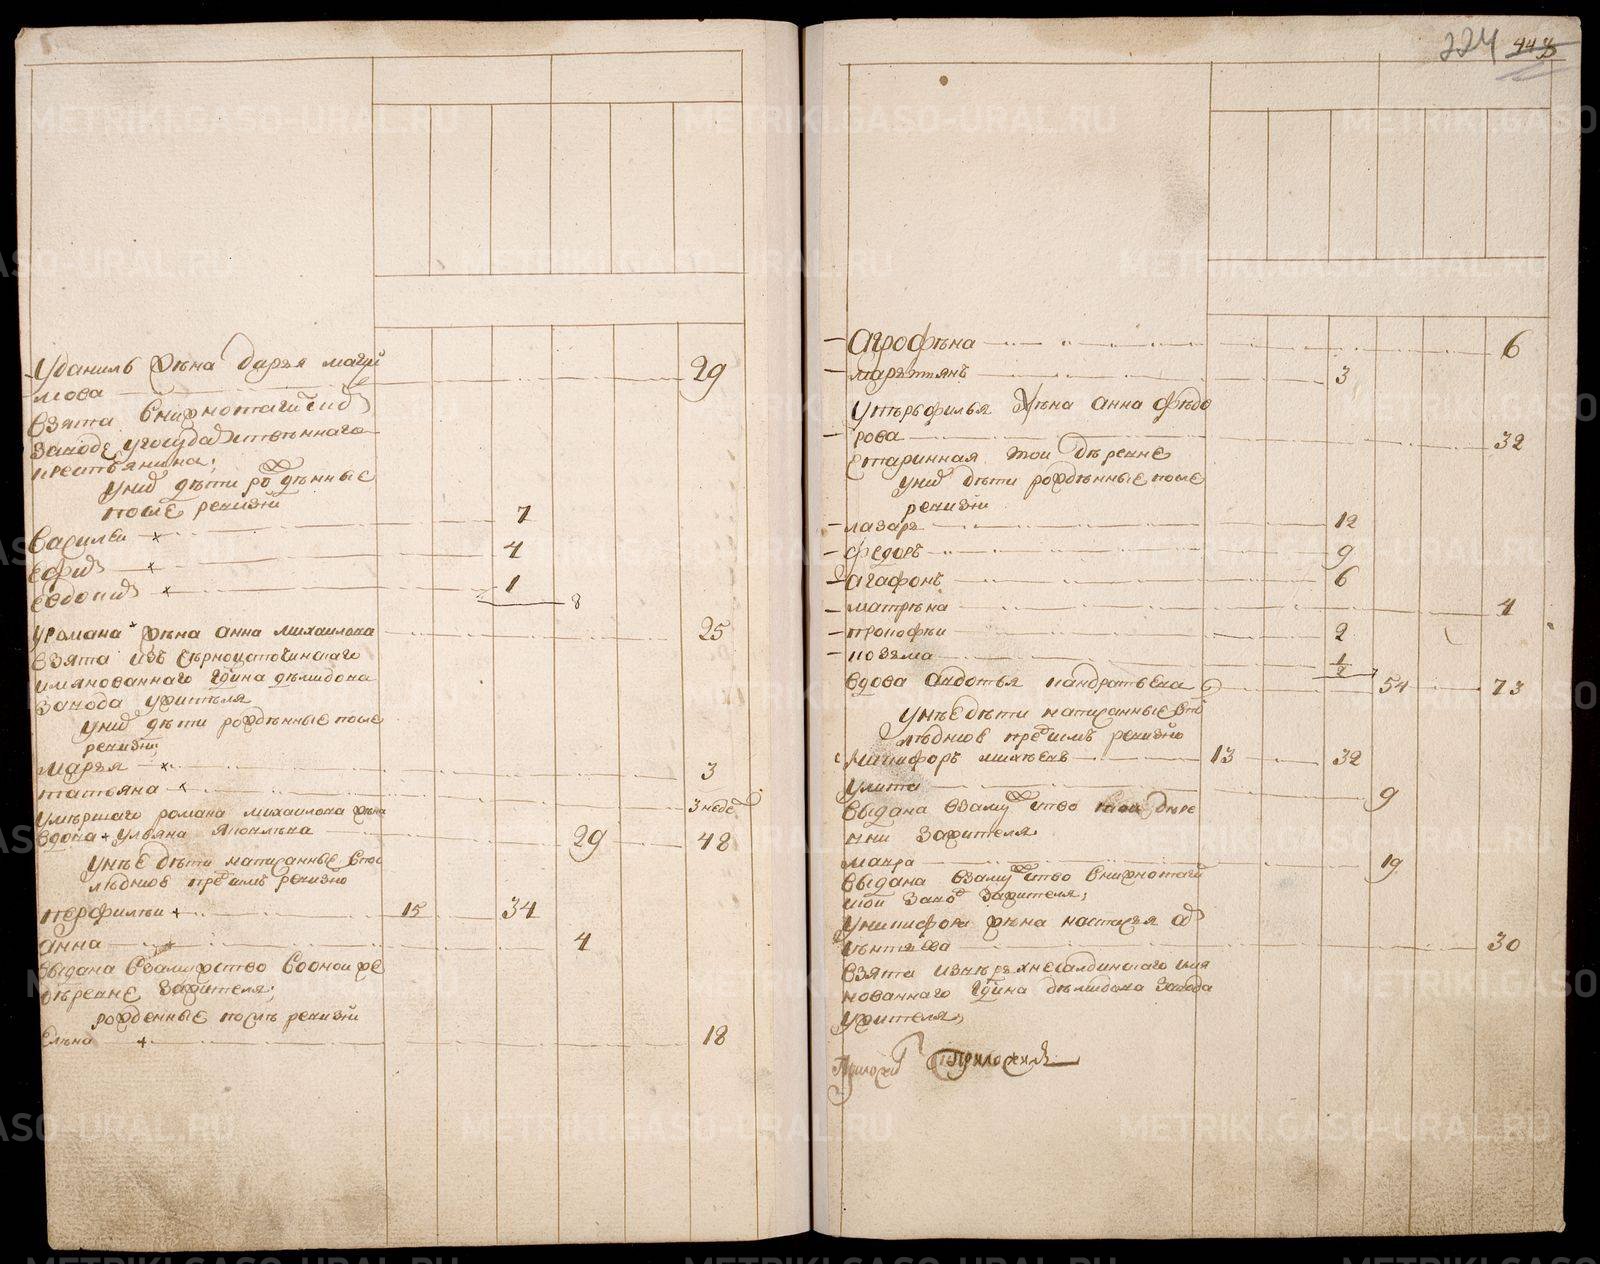 Уданилы жена дарья маѯи
мова 29
взята внижнотагилско
заводе угосударственнаго
крестьянина;
уних дети рожденные
после ревизии
василеи 7
ефим 4
евдоким 1
8
уромана жена анна михаилова 25
взята изъ черноисточинскаго
имянованнаго гдина демидова
завода ужителя
уних дети рожденные после
ревизии
марья 3
татьяна 3 неде
умершаго романа михаилова жена
вдова ульяна яковлева 29 48
унее дети написанные впос
ледную пред симъ ревизию
перфилеи 15 34
анна 4
выдана взамужство водной же
деревне зажителя;
рожденные послъ ревизии
елена 18
224
агрофена 6
мартемянъ 3
уперфилья жена анна федо
рова 32
старинная тои деревне
уних дети рожденные после
ревизии
лазарь 12
федоръ 9
агафонъ 6
матрена 4
прокофеи 2
козма 1/2
вдова авдотья кандратьева 54 73
унее дети написанные впо
следнюю пред симъ ревизию
никифоръ михеевъ 13 32
улита 9
выдана взамужство тои дере
вни зажителя
макра 19
выдана взамужство внижнотаги
лскои завод зажителя;
уникифора жена настасья
30
взята изверхнесалдинскаго имя
нованнаго гдина демидова завода
ужителя,
METRIKI.GASO-URAL.RU